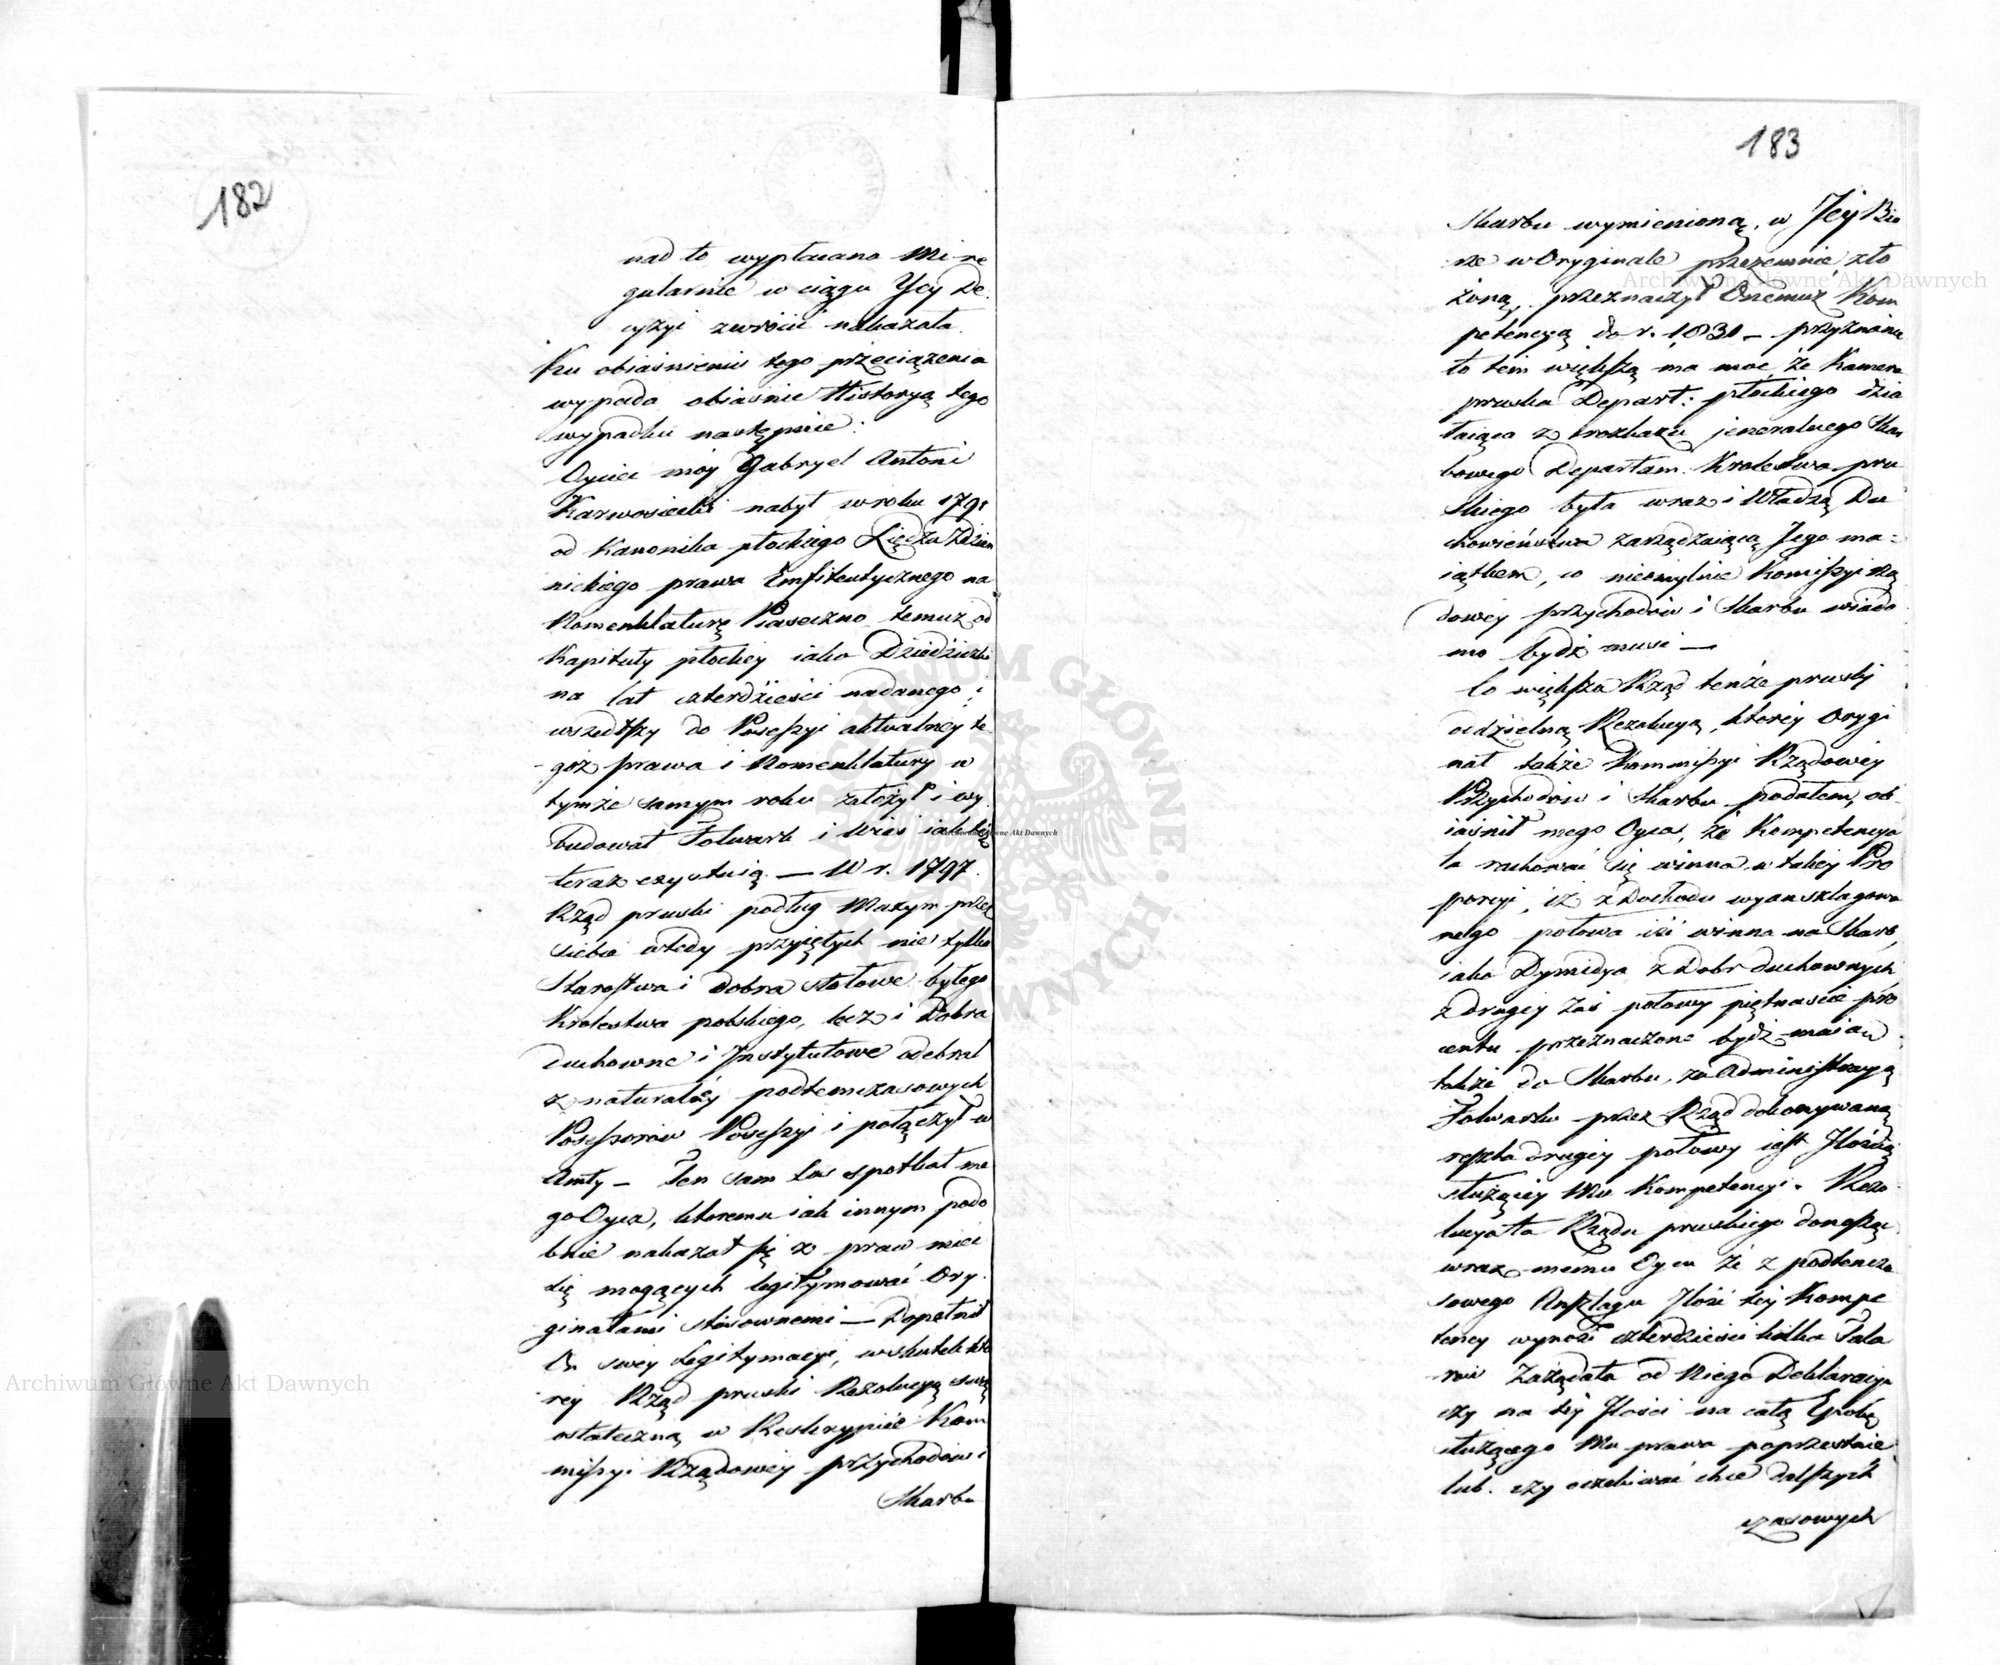 182
nad to wypłacano Mi re
gularnie w ciągu Jey De
cyzyi zwrócić nakazała.
Ku obiaśnieniu tego przeciążenia
wypada obiaśnić Historyą tego
wypadku następnie:
Oyciec móy Gabryel Antoni
Karwosiecki nabył w roku 1791
od Kanonika płockiego Xiędza
nickiego prawa Emfiteutycznego na
Nomenklaturę Piaseczno temuż od
Kapituły płockiey iako Dziedziczki
na lat czterdzieści nadanego i
wszedłszy do Possessyi aktualney te
goż prawa i Nomenklatury w
tymże samym roku założył i wy
budował Folwark i Wieś iak się
teraz exystuią. — W r. 1797.
Rząd pruski podług Maxym przez
siebie wtedy przyiętych nie tylko
Starostwa i Dobra stołowe byłego
Krolestwa polskiego, lecz i Dobra
duchowne i Instytutowe odebrał
z naturalney podtemczasowych
Possessorów Possessyi i połączył w
Amty — Ten sam los spotkał me
go Oyca, któremu iak innym podo
bnie nakazał się z praw mieć
się mogących legitymować Ory
ginałami stósownemi — Dopełnił
On swey Legitymacyi, wskutek któ
rey Rząd pruski Rezolucyą swą
ostateczną w Reskrypcie Kom
missyi Rządowey przychodów i
Skarbu
183
Skarbu wymienioną, w Jey Biu
rze w Oryginale przezemnie zło
żoną, przeznaczył Onemuż Kom
petencyą do r. 1831 — przyznanie
to tem większą ma moc, że Kamera
pruska Depart: płockiego dzia
łaiąca z rozkazu jeneralnego Skar
bowego Departam. Krolestwa pru
skiego była wraz i Władzą Du
chowieństwa zarządzaiącą Jego ma=
iątkiem, co nieomylnie Komissyi Rzą
dowey przychodów i Skarbu wiado
mo bydź musi —
Co większa Rząd tenże pruski
oddzielną Rezolucyą, którey Orygi
nał także Kommissyi Rządowey
Przychodów i Skarbu podałem, ob
iaśnił mego Oyca, że Kompetencya
ta rachować się winna w takiey Pro
porcyi, iż z Dochodu wyanszlagowa
nego połowa iść winna na Skarb,
iako Dymidya z Dobr duchownych,
z drugiey zaś połowy piętnaście pro
centu przeznaczone bydź maią
także do Skarbu, za Administracyą
Folwarku przez Rząd dokonywaną
reszta drugiey połowy iest Ilością
służącey Mu Kompetencyi. Rezo
lucya ta Rządu pruskiego donosząc
wraz memu Oycu że z podtencza
sowego Anszlagu Ilość tey Kompe
tencyi wynosi czterdzieści kilka Tala
rów zażądała od Niego Deklaracyi
czy na tey Ilości na całą Epokę
służącego Mu prawa poprzestaie
lub czy oczekiwać chce dalszych
czasowych
Archiwum Główne Akt Dawnych
Archiwum Główne Akt Dawnych
Archiwum Główne Akt Dawnych